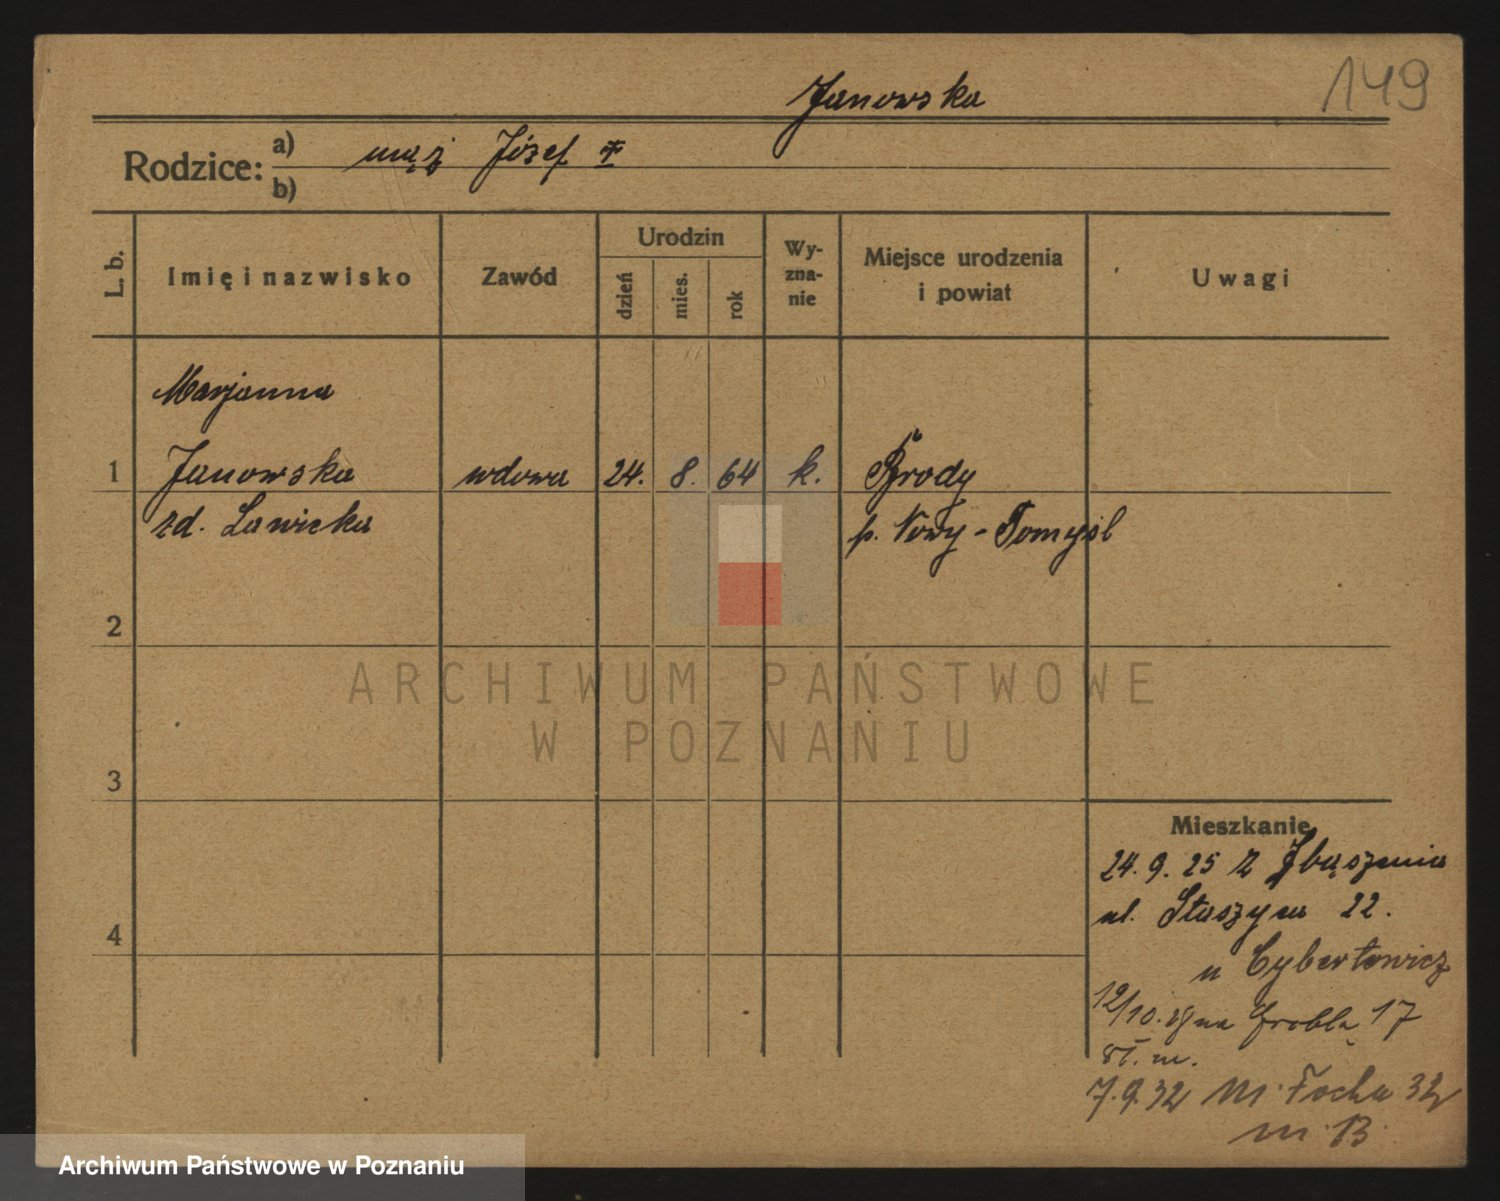 149
Janowska
Rodzice: a) mąż Józef +
b)
L. b.
Imię i nazwisko
Zawód
Urodzin
dzień
mies.
rok
Wy-
zna-
nie
Miejsce urodzenia
i powiat
Uwagi
Marjanna
1 Janowska wdowa 24. 8. 64 k. Brody
zd. Lawicka p. Nowy-Tomyśl
2
ARCHIWUM PAŃSTWOWE
W POZNANIU
3
Mieszkanie
24. 9. 25 z Zbąszenia
ul. Staszyca 22.
4
u Cybertowicz
12/10. 28 na Grobla 17
st. m.
7.9.32 M. Focha 32
m. 13
Archiwum Państwowe w Poznaniu